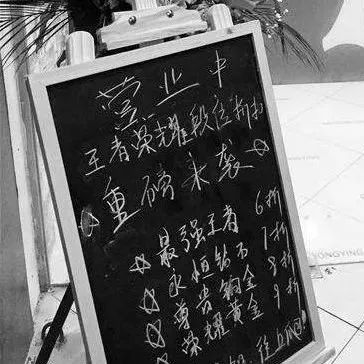 营业中
王者荣耀段位折扣
重磅来袭
最强王者 6折
永恒钻石 7折
尊贵铂金 8折
荣耀黄金 9折